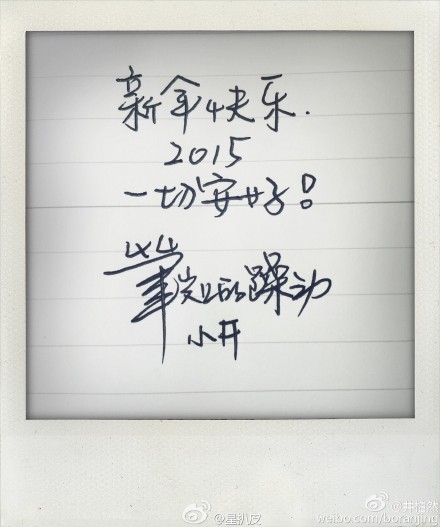 新年快乐.
2015
一切安好!
躁动
小井
@星扒皮
@井柏然
weibo.com/boranjing